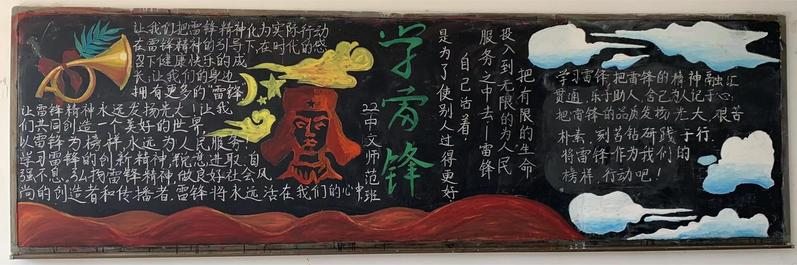 让我们把雷锋精神化为实际行动
在雷锋精神的引导下,在时代的感
召下健康快乐的成
长;让我们的身边
拥有更多的“雷锋
让雷锋精神永远发扬光大!让我
们共同创造一个美好的世界,
以雷锋为榜样,永远为人民服务!
学习雷锋的创新精神,锐意进取,自
强不息,弘扬雷锋精神做良好社会风
尚的创造者和传播者,雷锋将永远活在我们的心中,
22中文师范班
学雷锋
自己活着,
是为了使别人过得更好
把有限的生命
投入到无限的为人民
服务之中去—雷锋
学习雷锋,把雷锋的精神融汇
贯通,乐于助人,舍己为人记于心,
把雷锋的品质发扬光大,艰苦
朴素,刻苦钻研践于行,
将雷锋作为我们的
榜样,行动吧!